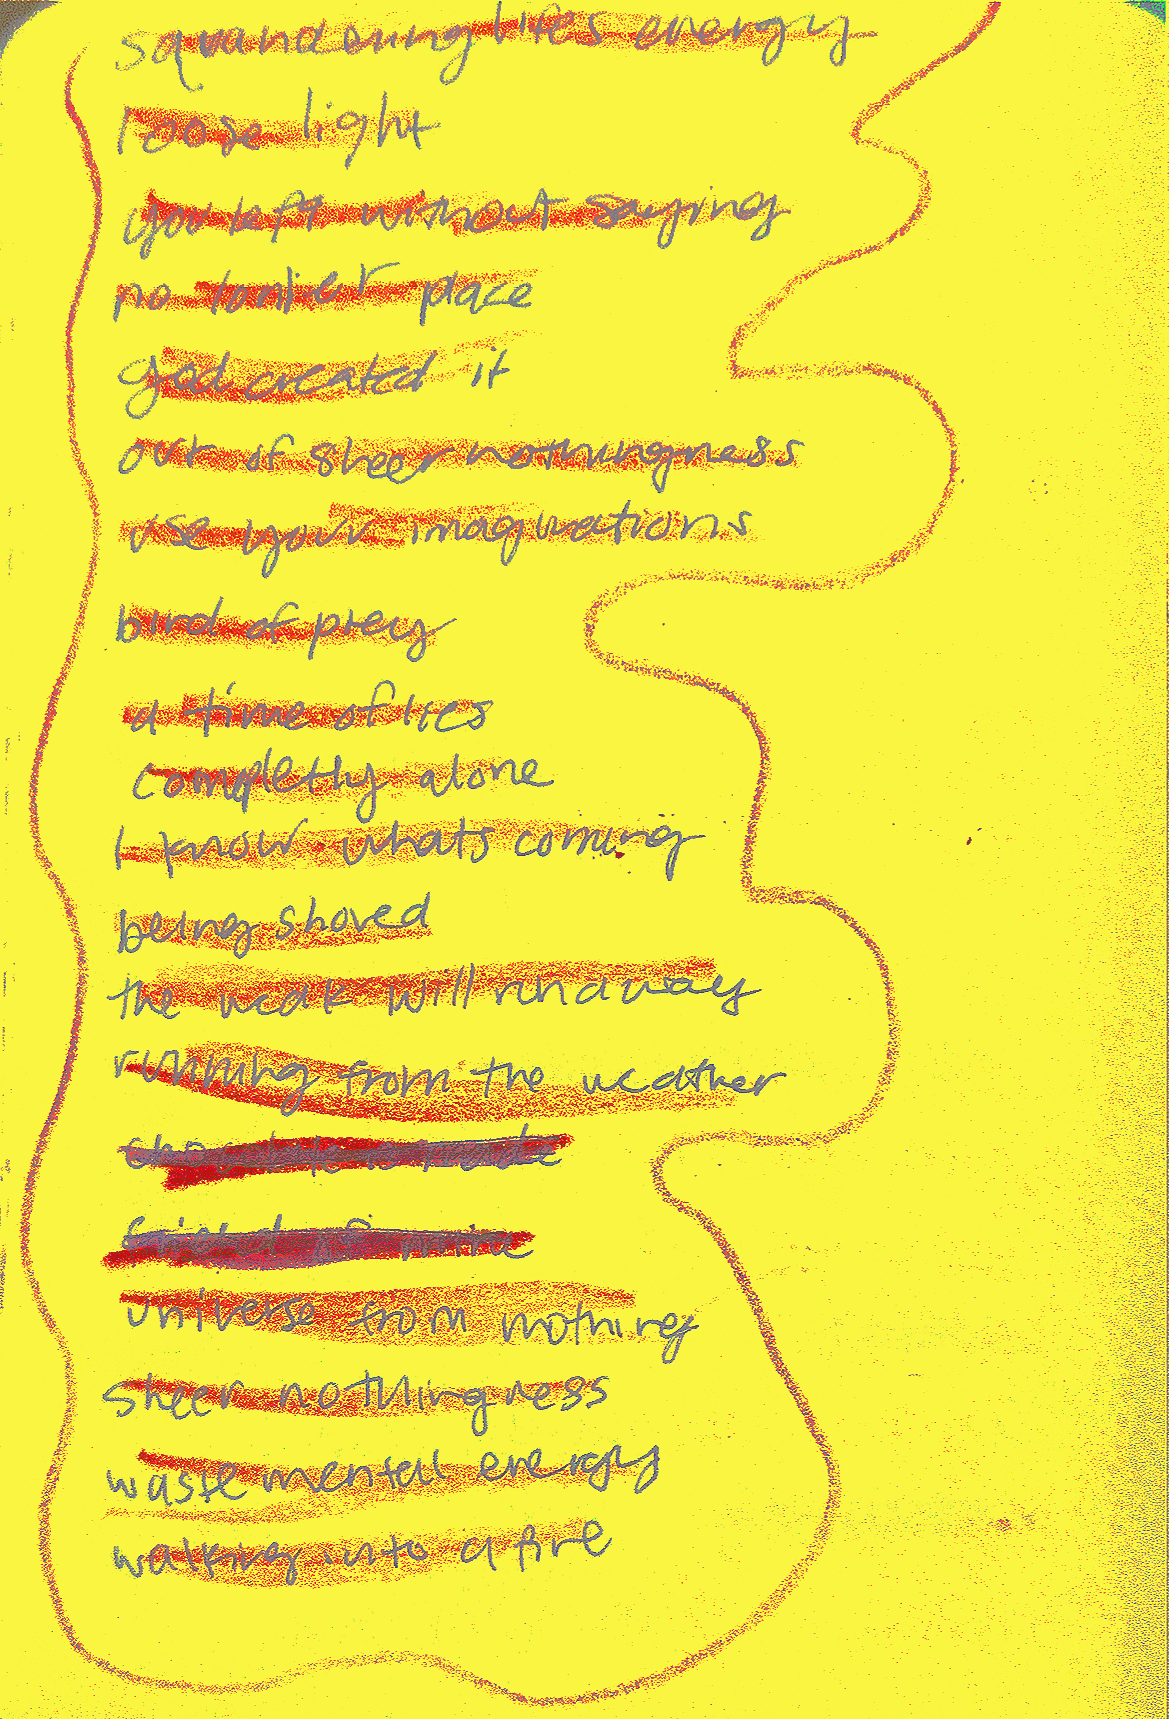 squandering lifes energy
loose light
you left without saying
no place
god created it
out of sheer nothingness
use your imaginations
bird of prey
a time of lies
completly alone
I know whats coming
being shoved
the weak will runaway
running from the weather
universe from nothing
sheer nothingness
waste mentall energy
walking into a fire